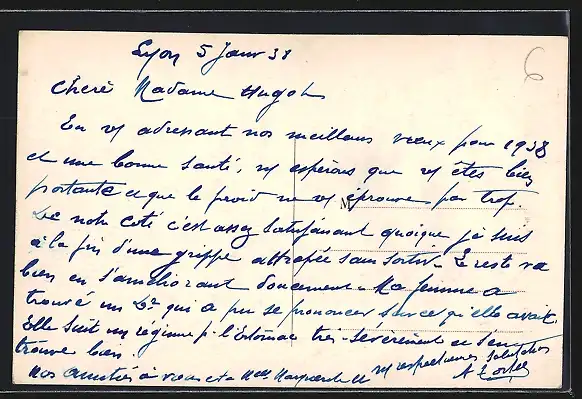 Lyon 5 Janv 38
Chère Madame Hugot
En vs adressant nos meilleurs vœux pour 1938
et une bonne santé, ns espérons que vs êtes bien
portante et que le froid ne vs éprouve pas trop.
De notre coté c'est assez satisfaisant quoique je suis
à la fin d'une grippe attrapée sans sortir. Le reste va
bien en s'améliorant doucement. Ma femme a
trouvé un Dr qui a pu se prononcer sur ce qu'elle avait.
Elle suit un régime p. l'Estomac très sévèrement et s'en
trouve bien.
Nos amitiés à vous et à Melle Marguerite et
respectueuses salutations
6
M